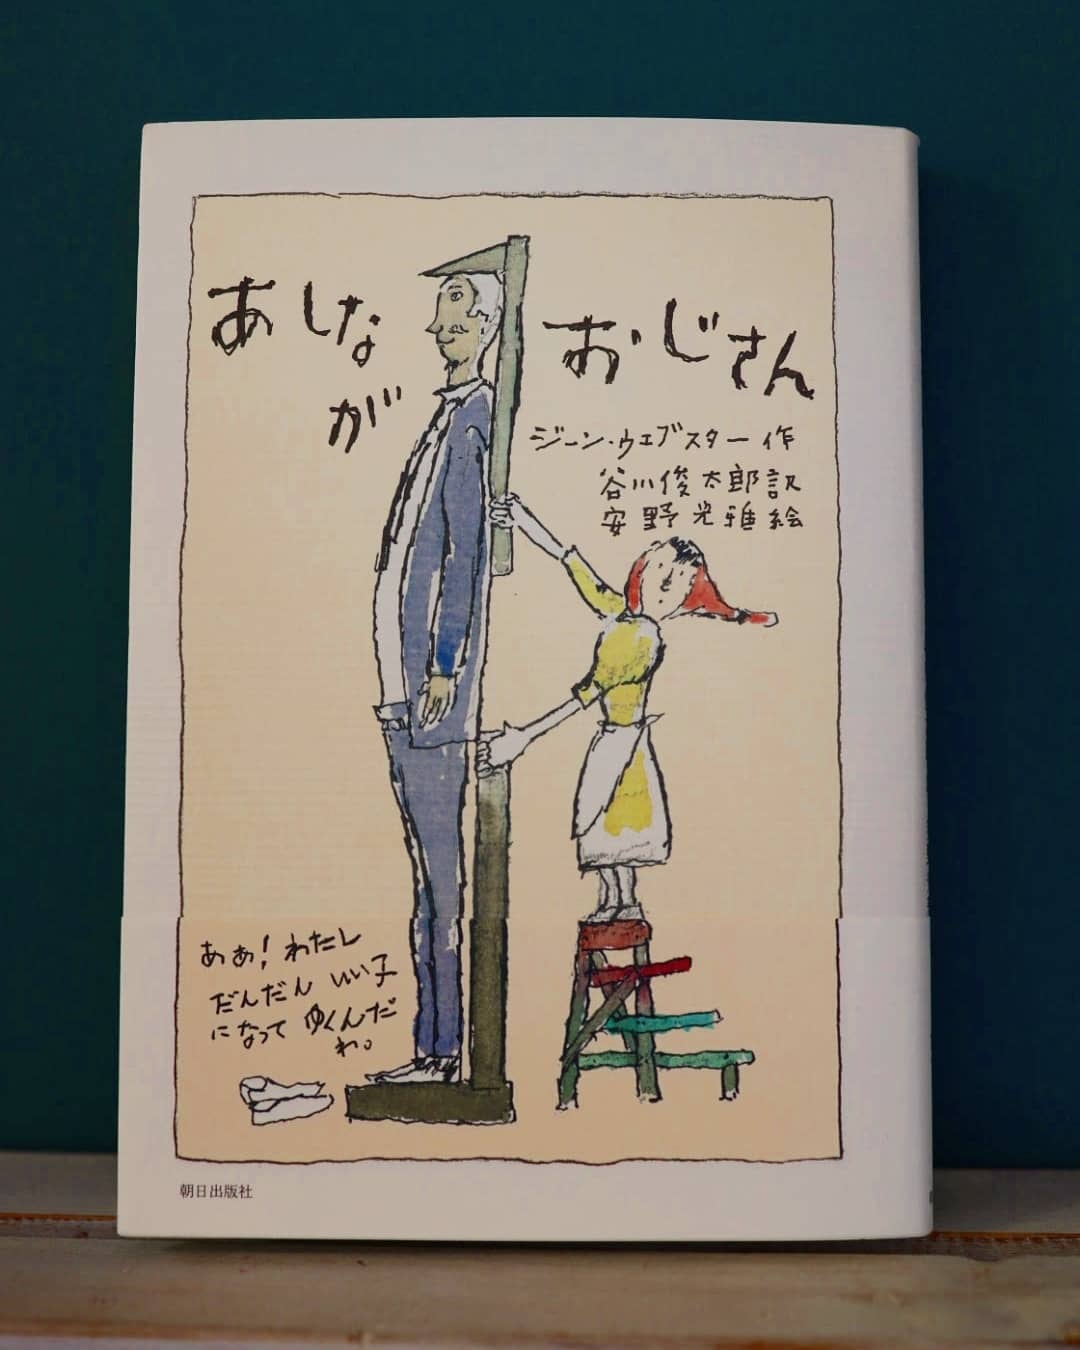 あしなが
おじさん
ジーン・ウェブスター 作
谷川俊太郎 訳
安野光雅 絵
ああ！わたし
だんだん いい子
になって ゆくんだ
わ。
朝日出版社